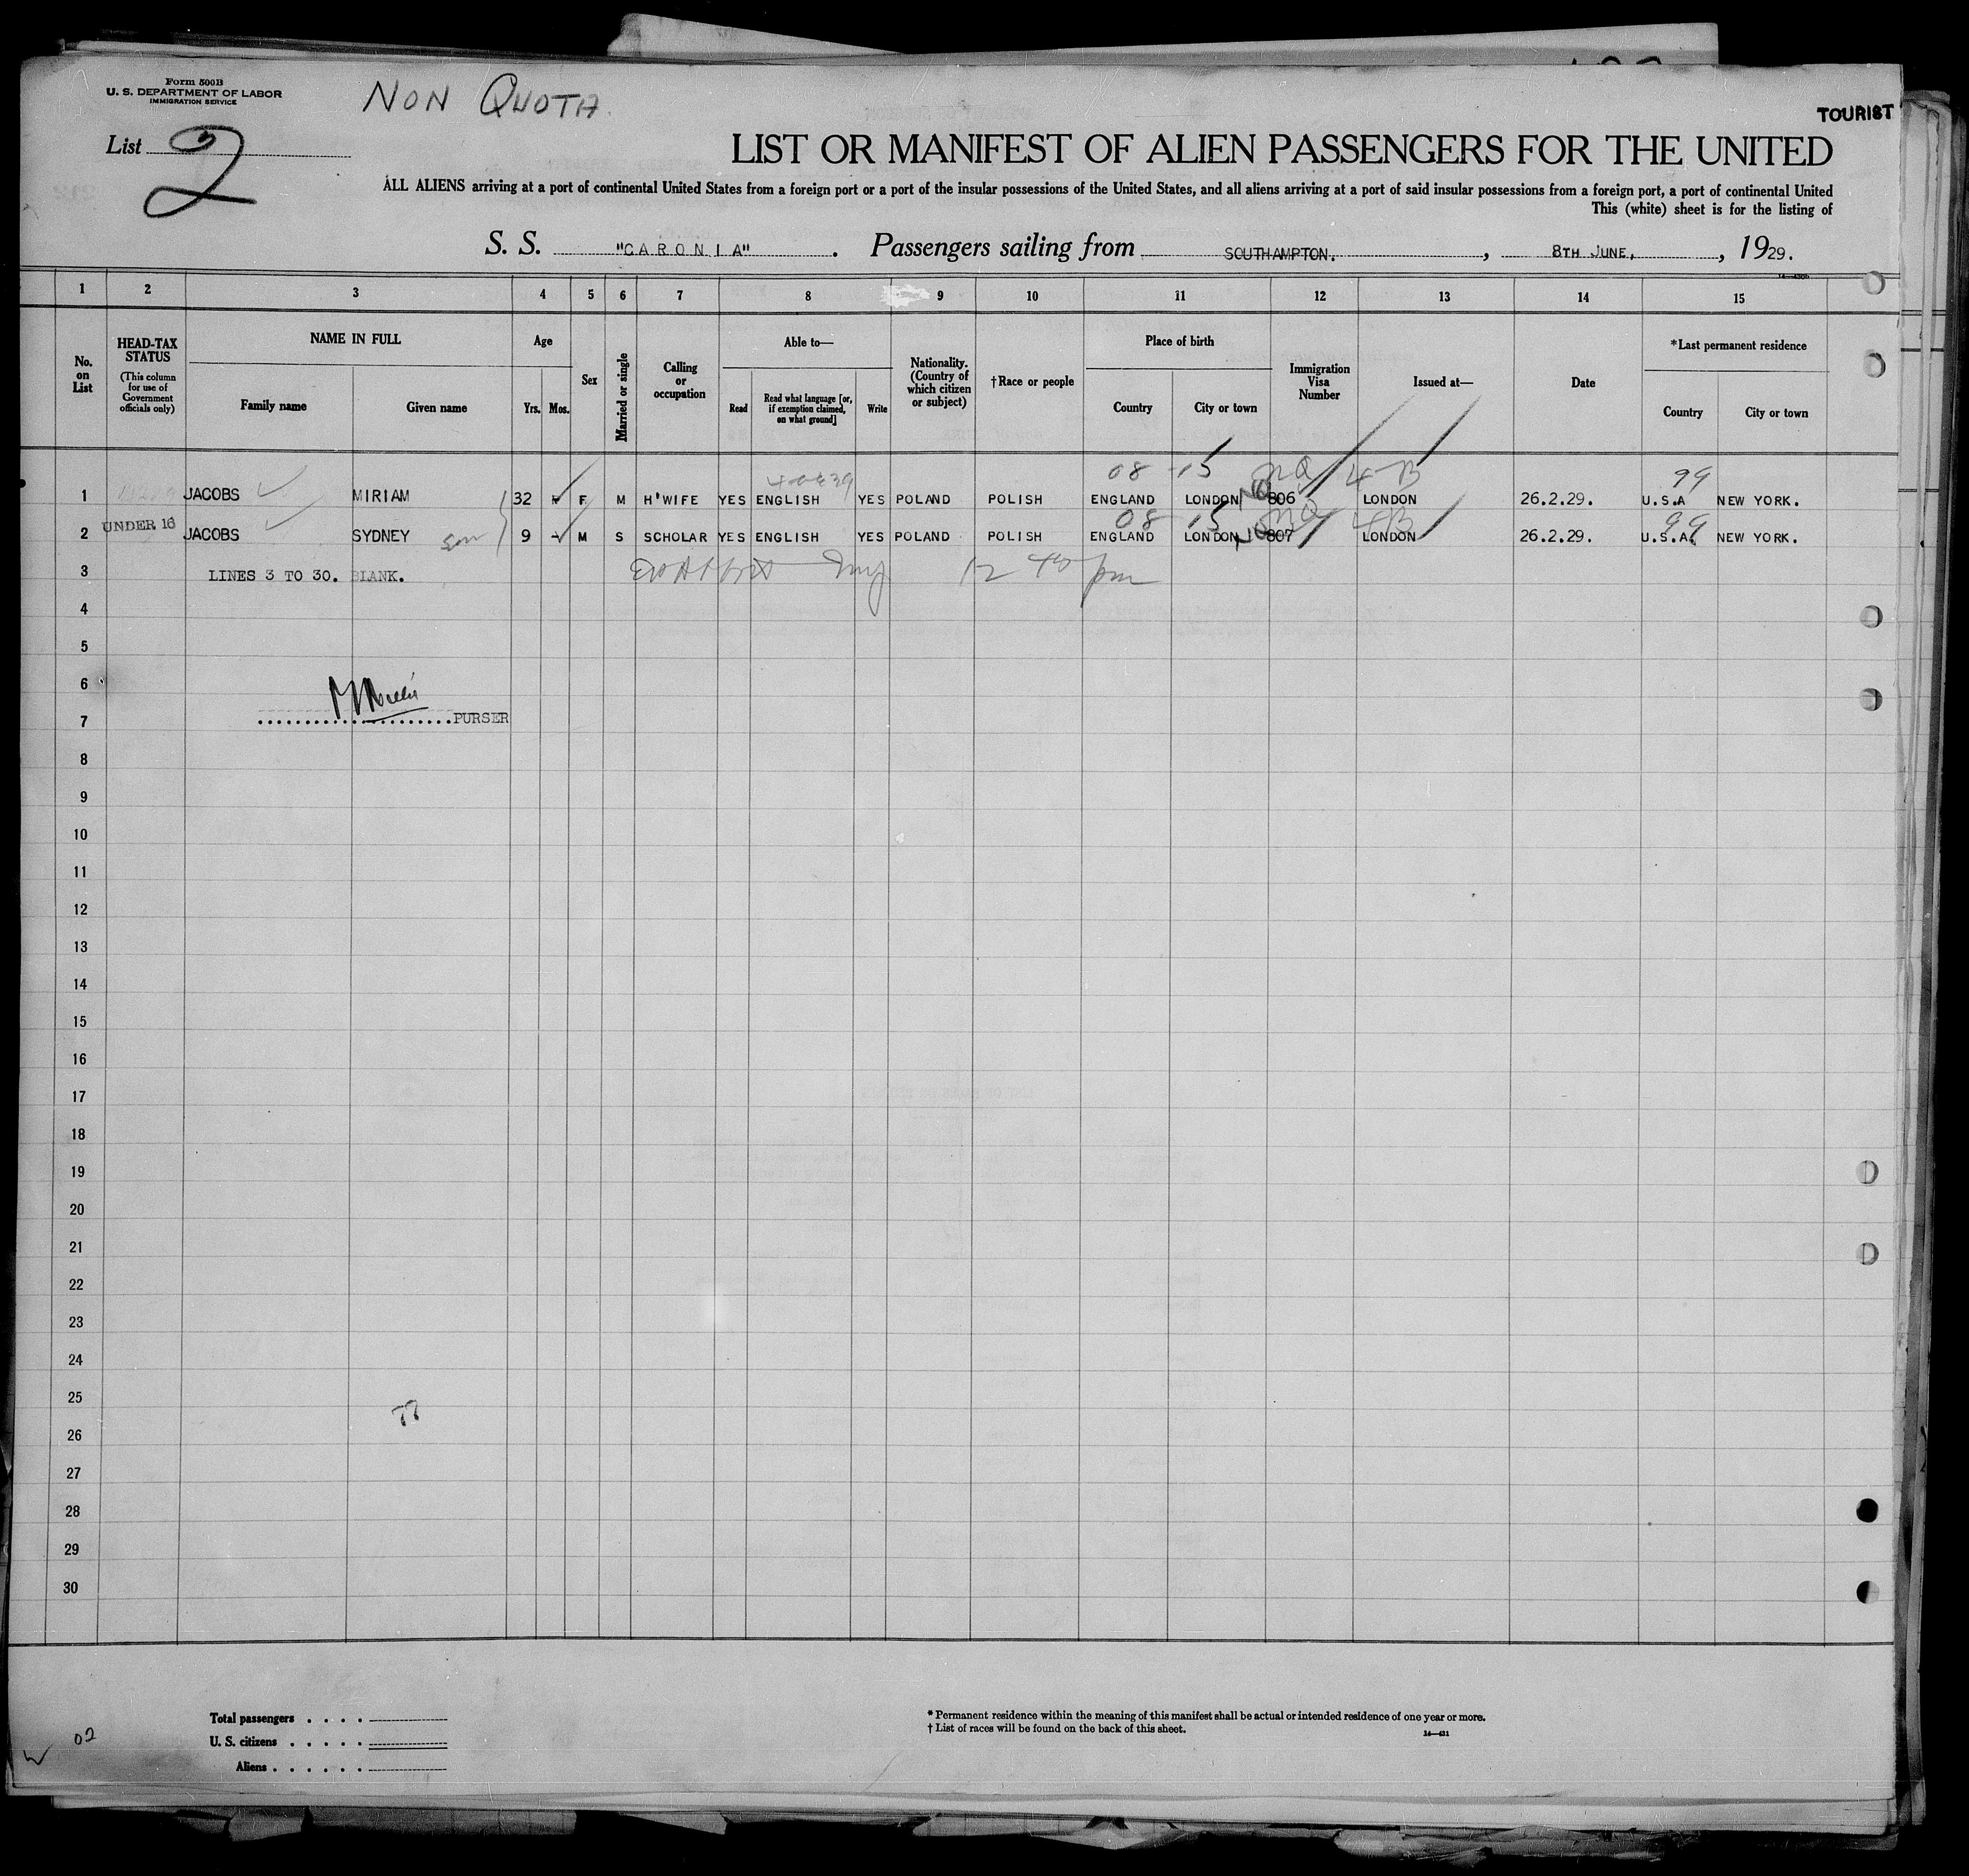 Form 500B
U. S. DEPARTMENT OF LABOR
IMMIGRATION SERVICE
NON QUOTA
TOURIST
List 2
LIST OR MANIFEST OF ALIEN PASSENGERS FOR THE UNITED
ALL ALIENS arriving at a port of continental United States from a foreign port or a port of the insular possessions of the United States, and all aliens arriving at a port of said insular possessions from a foreign port, a port of continental United
This (white) sheet is for the listing of
S. S. "CARONIA" . Passengers sailing from SOUTHAMPTON. , 8TH JUNE, , 1929.
1 2 3 4 5 6 7 8 9 10 11 12 13 14 15
No. on List
HEAD-TAX STATUS
(This column for use of Government officials only)
NAME IN FULL
Family name
Given name
Age
Yrs. Mos.
Sex
Married or single
Calling or occupation
Able to—
Read
Read what language [or, if exemption claimed, on what ground]
Write
Nationality. (Country of which citizen or subject)
†Race or people
Place of birth
Country
City or town
Immigration Visa Number
Issued at—
Date
*Last permanent residence
Country
City or town
08 15 NQ 4 B 99
1 JACOBS MIRIAM 32 - F M H'WIFE YES ENGLISH YES POLAND POLISH ENGLAND LONDON 806 LONDON 26.2.29. U.S.A NEW YORK.
08 15 NQ 4B 99
2 UNDER 16 JACOBS SYDNEY son 9 - M S SCHOLAR YES ENGLISH YES POLAND POLISH ENGLAND LONDON 807 LONDON 26.2.29. U.S.A. NEW YORK.
3 LINES 3 TO 30. BLANK. 12 40 pm
4
5
6
7 PURSER
8
9
10
11
12
13
14
15
16
17
18
19
20
21
22
23
24
25
77
26
27
28
29
30
Total passengers . . . .
U. S. citizens . . . . .
Aliens . . . . . .
* Permanent residence within the meaning of this manifest shall be actual or intended residence of one year or more.
† List of races will be found on the back of this sheet.
14—431
02